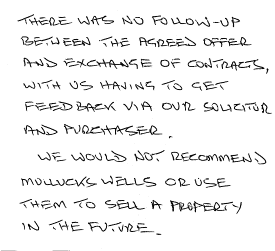 THERE WAS NO FOLLOW-UP
BETWEEN THE AGREED OFFER
AND EXCHANGE OF CONTRACTS,
WITH US HAVING TO GET
FEEDBACK VIA OUR SOLICITOR
AND PURCHASER.
WE WOULD NOT RECOMMEND
MULLUCKS WELLS OR USE
THEM TO SELL A PROPERTY
IN THE FUTURE.